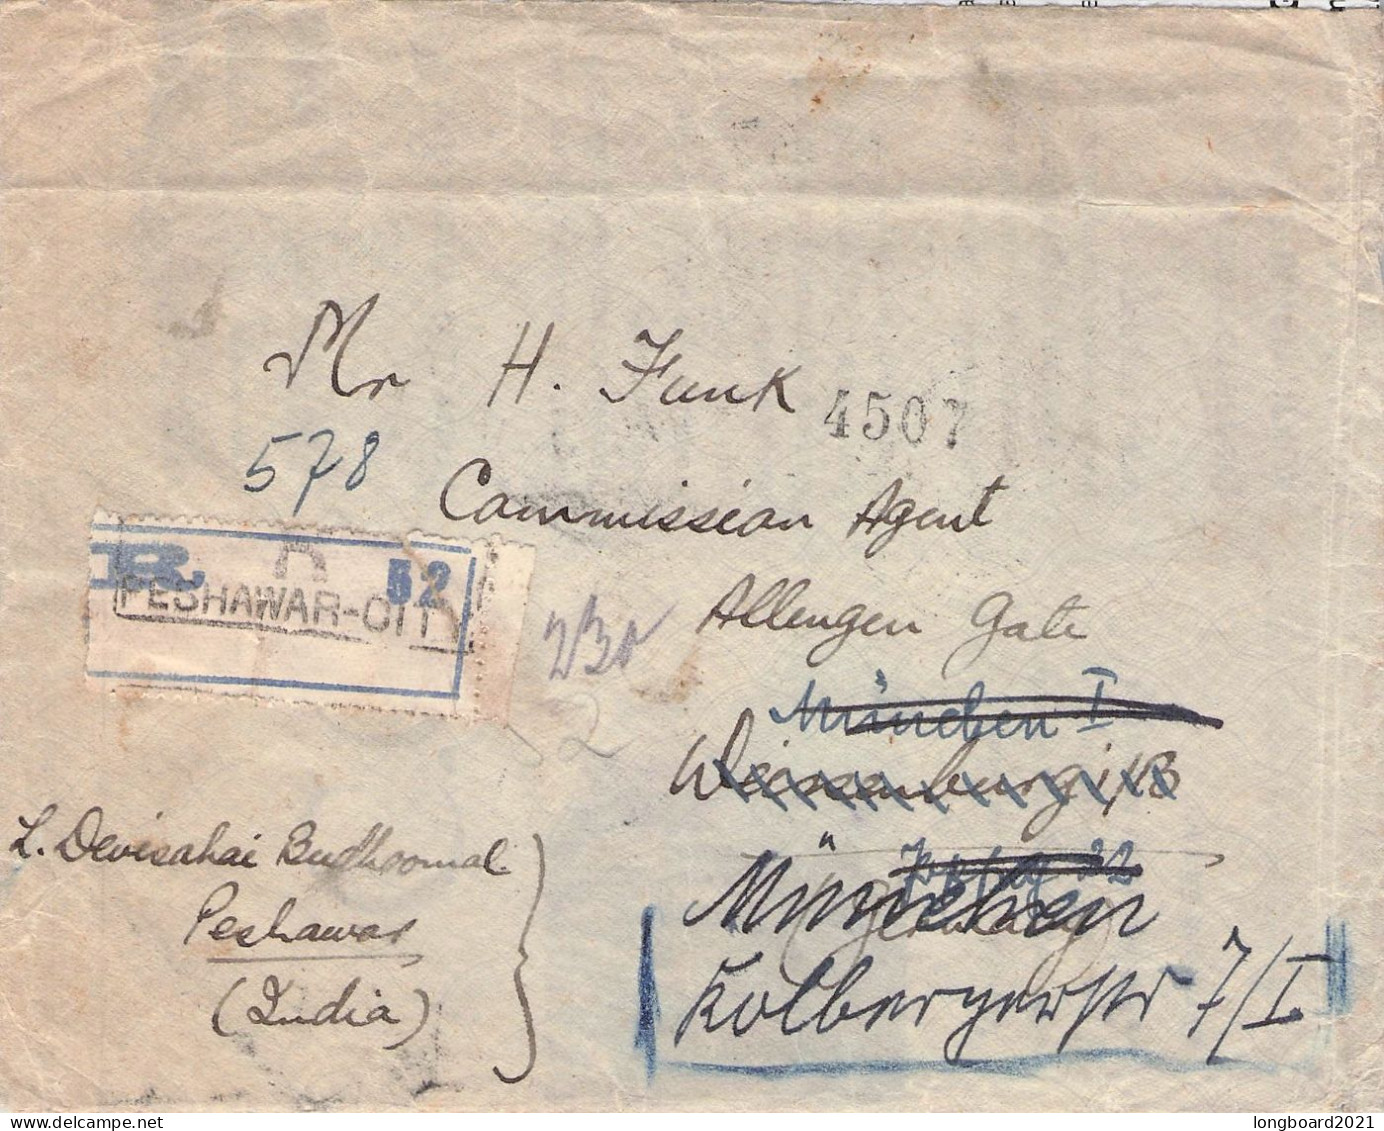 Mr H. Funk
4507
578
Commission Agent
R 52
PESHAWAR-CITY
Allengen Gate
München I
Weissenburg i/B
L. Devisahai Budhoomal
Peshawar
(India)
München
(Germany)
Kolbergerstr 7/I
2
longboard2021